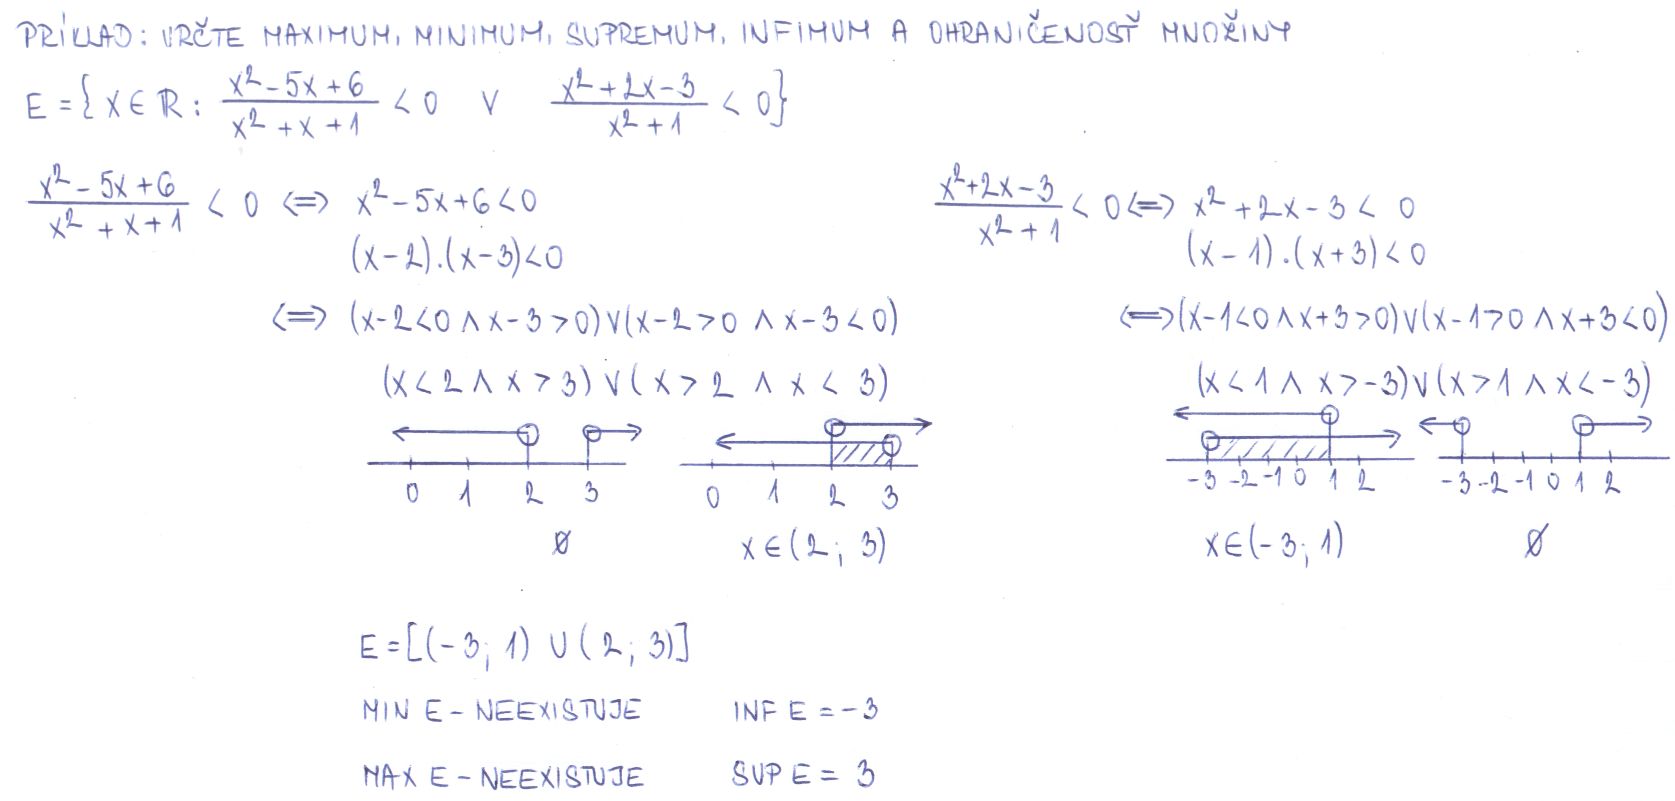 PRÍKLAD: URČTE MAXIMUM, MINIMUM, SUPREMUM, INFIMUM A OHRANIČENOSŤ MNOŽINY
E = { x ∈ R : (x² - 5x + 6)/(x² + x + 1) < 0 ∨ (x² + 2x - 3)/(x² + 1) < 0 }
(x² - 5x + 6)/(x² + x + 1) < 0 <=> x² - 5x + 6 < 0
(x - 2).(x - 3) < 0
<=> (x-2<0 ∧ x-3>0) ∨ (x-2>0 ∧ x-3<0)
(x<2 ∧ x>3) ∨ (x>2 ∧ x<3)
0 1 2 3
0 1 2 3
∅ x∈(2; 3)
(x² + 2x - 3)/(x² + 1) < 0 <=> x² + 2x - 3 < 0
(x - 1).(x + 3) < 0
<=> (x-1<0 ∧ x+3>0) ∨ (x-1>0 ∧ x+3<0)
(x<1 ∧ x>-3) ∨ (x>1 ∧ x<-3)
-3 -2 -1 0 1 2
-3 -2 -1 0 1 2
x∈(-3; 1) ∅
E = [(-3; 1) ∪ (2; 3)]
MIN E - NEEXISTUJE INF E = -3
MAX E - NEEXISTUJE SUP E = 3